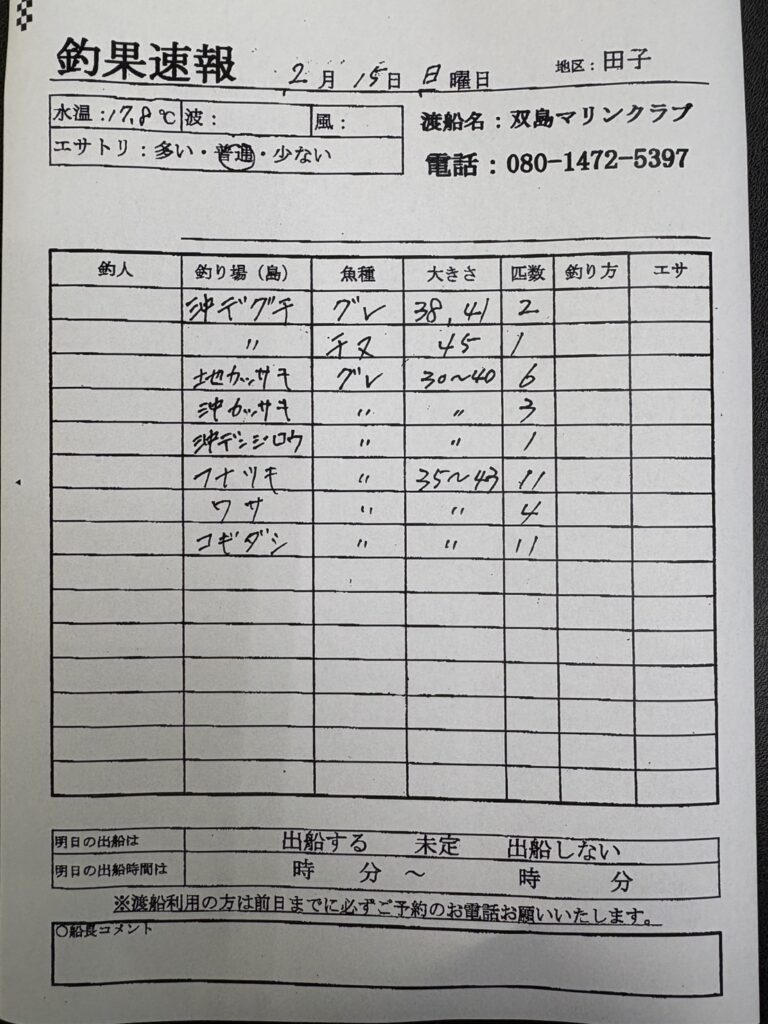 釣果速報 2月15日 日曜日 地区：田子
水温：17.8℃ 波： 風：
渡船名：双島マリンクラブ
エサトリ：多い・普通・少ない
電話：080-1472-5397
釣人 釣り場（島） 魚種 大きさ 匹数 釣り方 エサ
沖デグチ グレ 38,41 2
〃 チヌ 45 1
地カッサキ グレ 30～40 6
沖カッサキ 〃 〃 3
沖デンジロウ 〃 〃 1
フナツキ 〃 35～43 11
ワサ 〃 〃 4
コギダシ 〃 〃 11
明日の出船は 出船する 未定 出船しない
明日の出船時間は 時 分 ～ 時 分
※渡船利用の方は前日までに必ずご予約のお電話お願いいたします。
○船長コメント